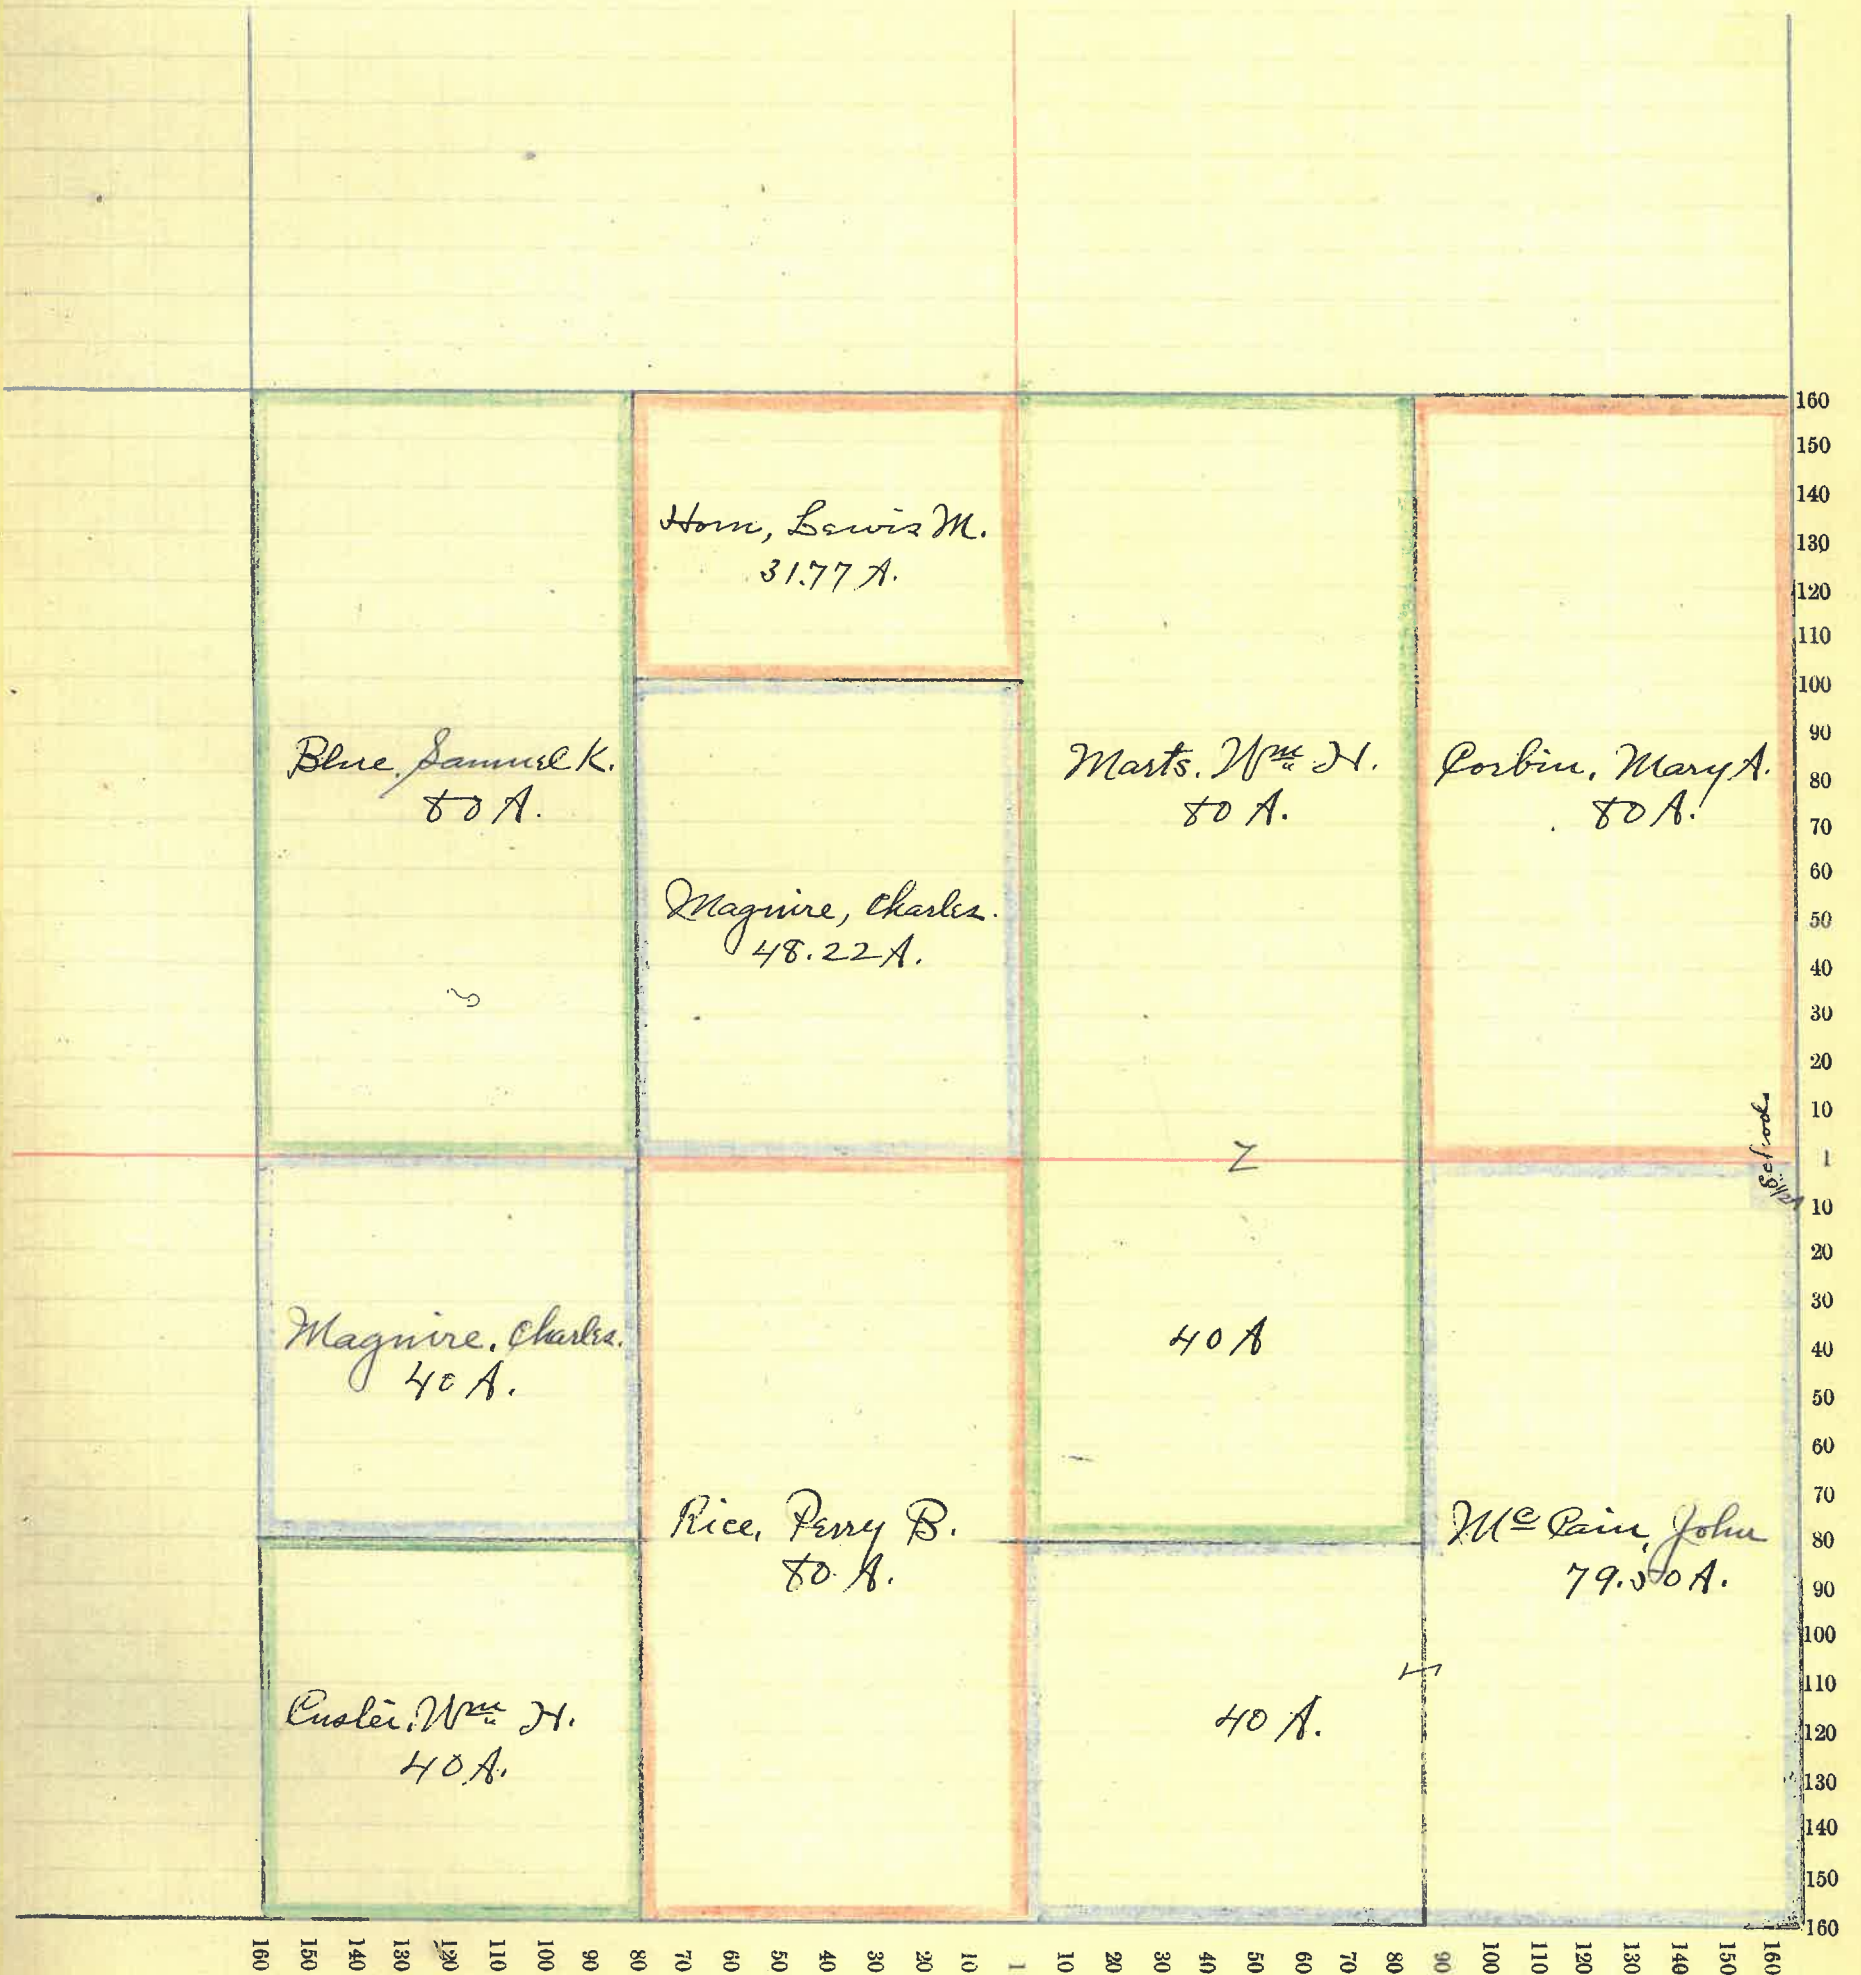 Horn, Lewis M.
31.77 A.
Blue, Samuel K.
80 A.
Maguire, Charles.
48.22 A.
Marts. Wm H.
80 A.
Corbin, Mary A.
80 A.
School
1/2 A
Z
Maguire, Charles.
40 A.
40 A
Rice, Perry B.
80. A.
Mc Cain, John
79.50 A.
Custer, Wm H.
40 A.
40 A.
160
150
140
130
120
110
100
90
80
70
60
50
40
30
20
10
1
10
20
30
40
50
60
70
80
90
100
110
120
130
140
150
160
160 150 140 130 120 110 100 90 80 70 60 50 40 30 20 10 1 10 20 30 40 50 60 70 80 90 100 110 120 130 140 150 160